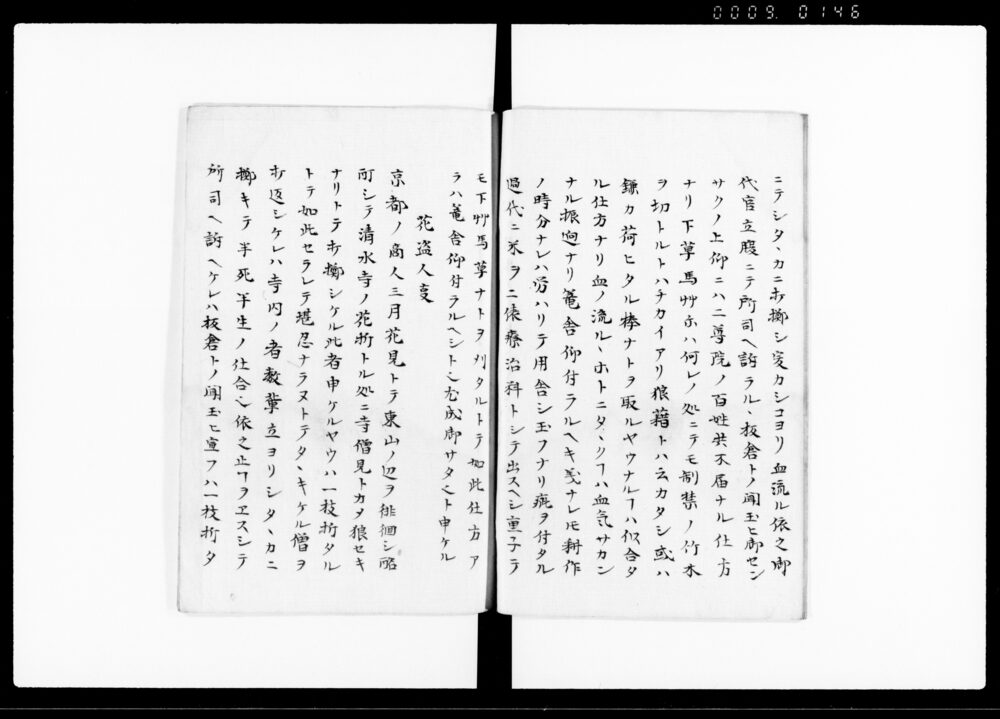 0009. 0146
ニテシタヽカニ打擲シ処カシコヨリ血流ル依之御
代官立腹ニテ所司ヘ訴ラル板倉トノ聞玉ヒ御セン
サクノ上仰ニハ二尊院ノ百姓共不届ナル仕方
ナリ下草馬艸ホハ何レノ処ニテモ制禁ノ竹木
ヲ切トルトハチカイアリ狼藉トハ云カタシ或ハ
鎌カ荷ヒタル棒ナトヲ取ルヤウナルヿハ似合タ
ル仕方ナリ血ノ流ルヽホトニタヽクヿハ血気サカン
ナル振廻ナリ篭舎仰付ラルヘキ義ナレ𪜈耕作
ノ時分ナレハ労ハリテ用舎シ玉フナリ疵ヲ付タル
過代ニ米ヲニ俵療治料トシテ出スヘシ重子テ
モ下艸馬草ナトヲ刈タルトテ如此仕方ア
ラハ篭舎仰付ラルヘシト也尤成御サタ也ト申ケル
花盗人㕝
京都ノ商人三月花見トテ東山ノ辺ヲ徘徊シ酩
酊シテ清水寺ノ花折トル処ニ寺僧見トカメ狼セキ
ナリトテ打擲シケル此者申ケルヤウハ一枝折タル
トテ如此セラレテ堪忍ナラヌトテタヽキケル僧ヲ
打返シケレハ寺内ノ者数輩立ヨリシタヽカニ
擲キテ半死半生ノ仕合也依之止ヿヲヱスシテ
所司ヘ訴ヘケレハ板倉トノ聞玉ヒ宣フハ一枝折タ